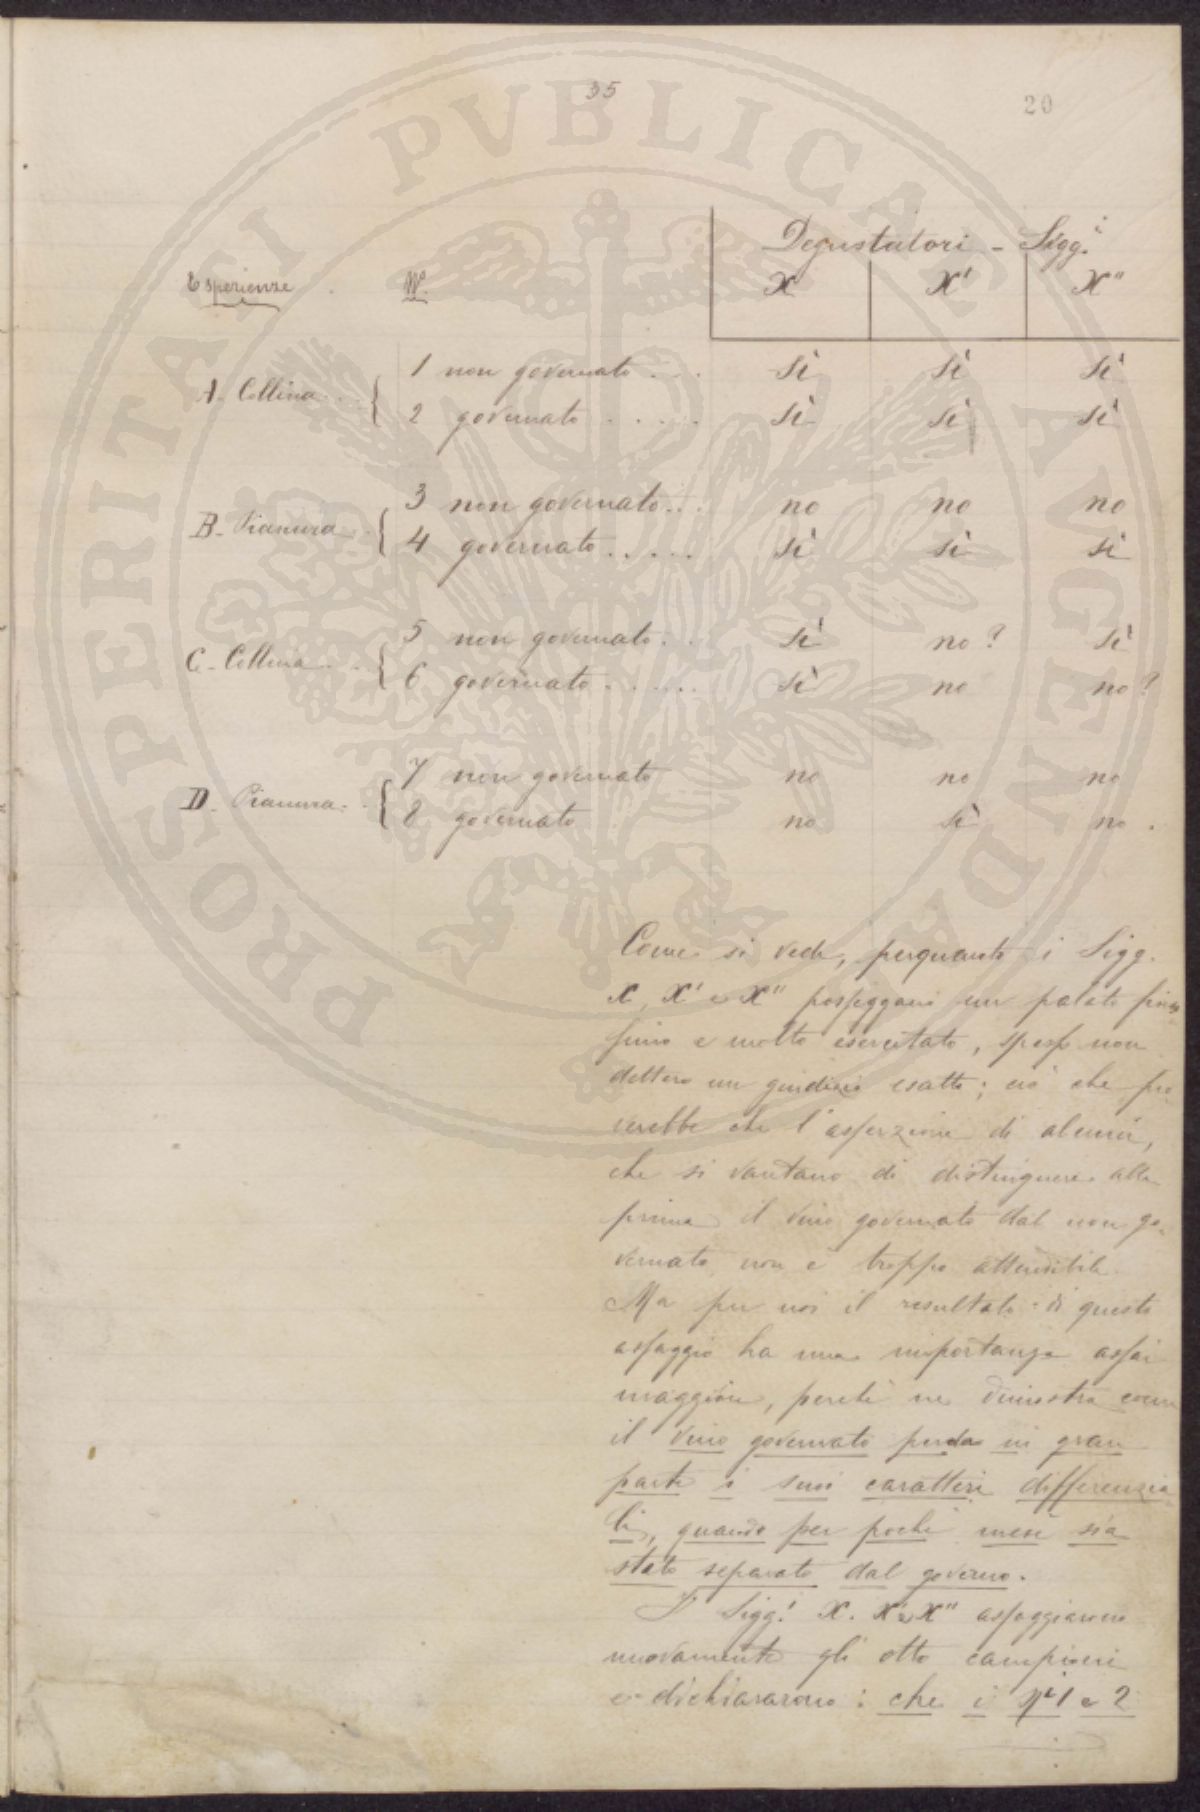 35
20
Degustatori - Sigg.i
Esperienze N.i X X' X"
A. Collina 1 non governato . . . Sì Sì Sì
2 governato . . . . . Sì Sì Sì
B. Pianura 3 non governato . . . no no no
4 governato . . . . . sì sì sì
C. Collina 5 non governato . . Sì no? Sì
6 governato . . . . . Sì no no?
D. Pianura 7 non governato no no no
8 governato no Sì no .
Come si vede, perquanto i Sigg.
X, X' e X" posseggano un palato finis
simo e molto esercitato, spesso non
dettero un giudizio esatto; ciò che pro
verebbe che l'asserzione di alcuni,
che si vantano di distinguere alla
prima il vino governato dal non go-
vernato non è troppo attendibile.
Ma per noi il resultato di questo
assaggio ha una importanza assai
maggiore, perchè ne dimostra come
il vino governato perda in gran
parte i suoi caratteri differenzia
li, quando per pochi mesi sia
stato separato dal governo.
I Sigg.i X. X' e X" assaggiarono
nuovamente gli otto campioni
e dichiararono: che i N.i 1 e 2
PROSPERITATI PVBLICAE AVGENDAE